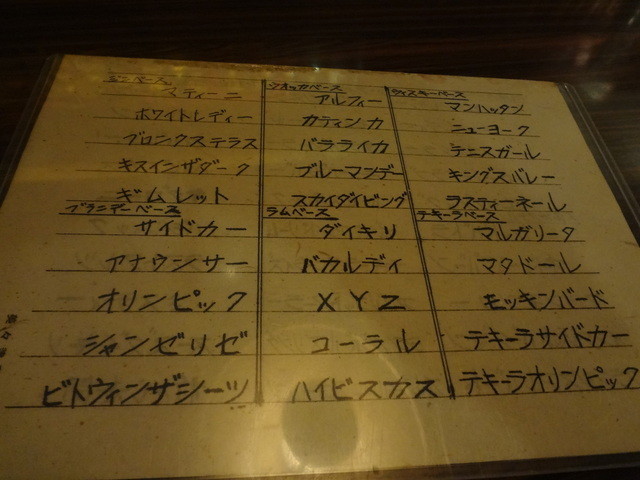 ジンベース
マティーニ
ホワイトレディー
ブロンクステラス
キスインザダーク
ギムレット
ウオッカベース
アルフィー
カティンカ
バラライカ
ブルーマンデー
スカイダイビング
ウィスキーベース
マンハッタン
ニューヨーク
テニスガール
キングスバレー
ラスティーネール
ブランデーベース
サイドカー
アナウンサー
オリンピック
シャンゼリゼ
ビトウィンザシーツ
ラムベース
ダイキリ
バカルディ
XYZ
コーラル
ハイビスカス
テキーラベース
マルガリータ
マタドール
モッキンバード
テキーラサイドカー
テキーラオリンピック